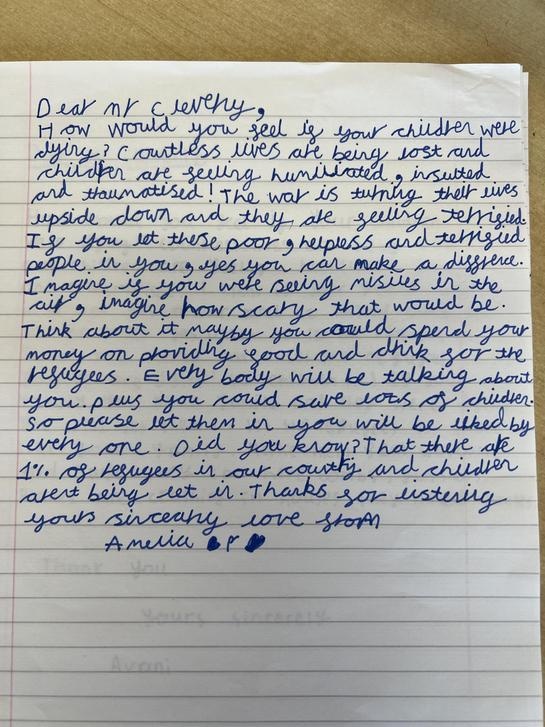 Dear mr cleverly,
How would you feel if your children were
dying? Countless lives are being lost and
children are feeling humiliated, insulted
and traumatised! The war is turning their lives
upside down and they are feeling terrified.
If you let these poor, helpless and terrified
people in you, yes you can make a diffrence.
Imagine if you were seeing misiles in the
air, imagine how scary that would be.
Think about it mayby you could spend your
money on providing food and drink for the
refugees. Every body will be talking about
you. plus you could save lots of children.
so please let them in you will be liked by
every one. Did you know? That there are
1% of refugees in our country and children
arent being let in. Thanks for listering
yours sincealy love from
Amelia P
Thank you
Yours sincerely
Avani